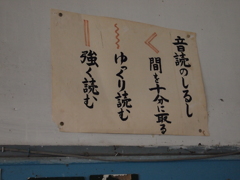 音読のしるし
間を十分に取る
ゆっくり読む
強く読む